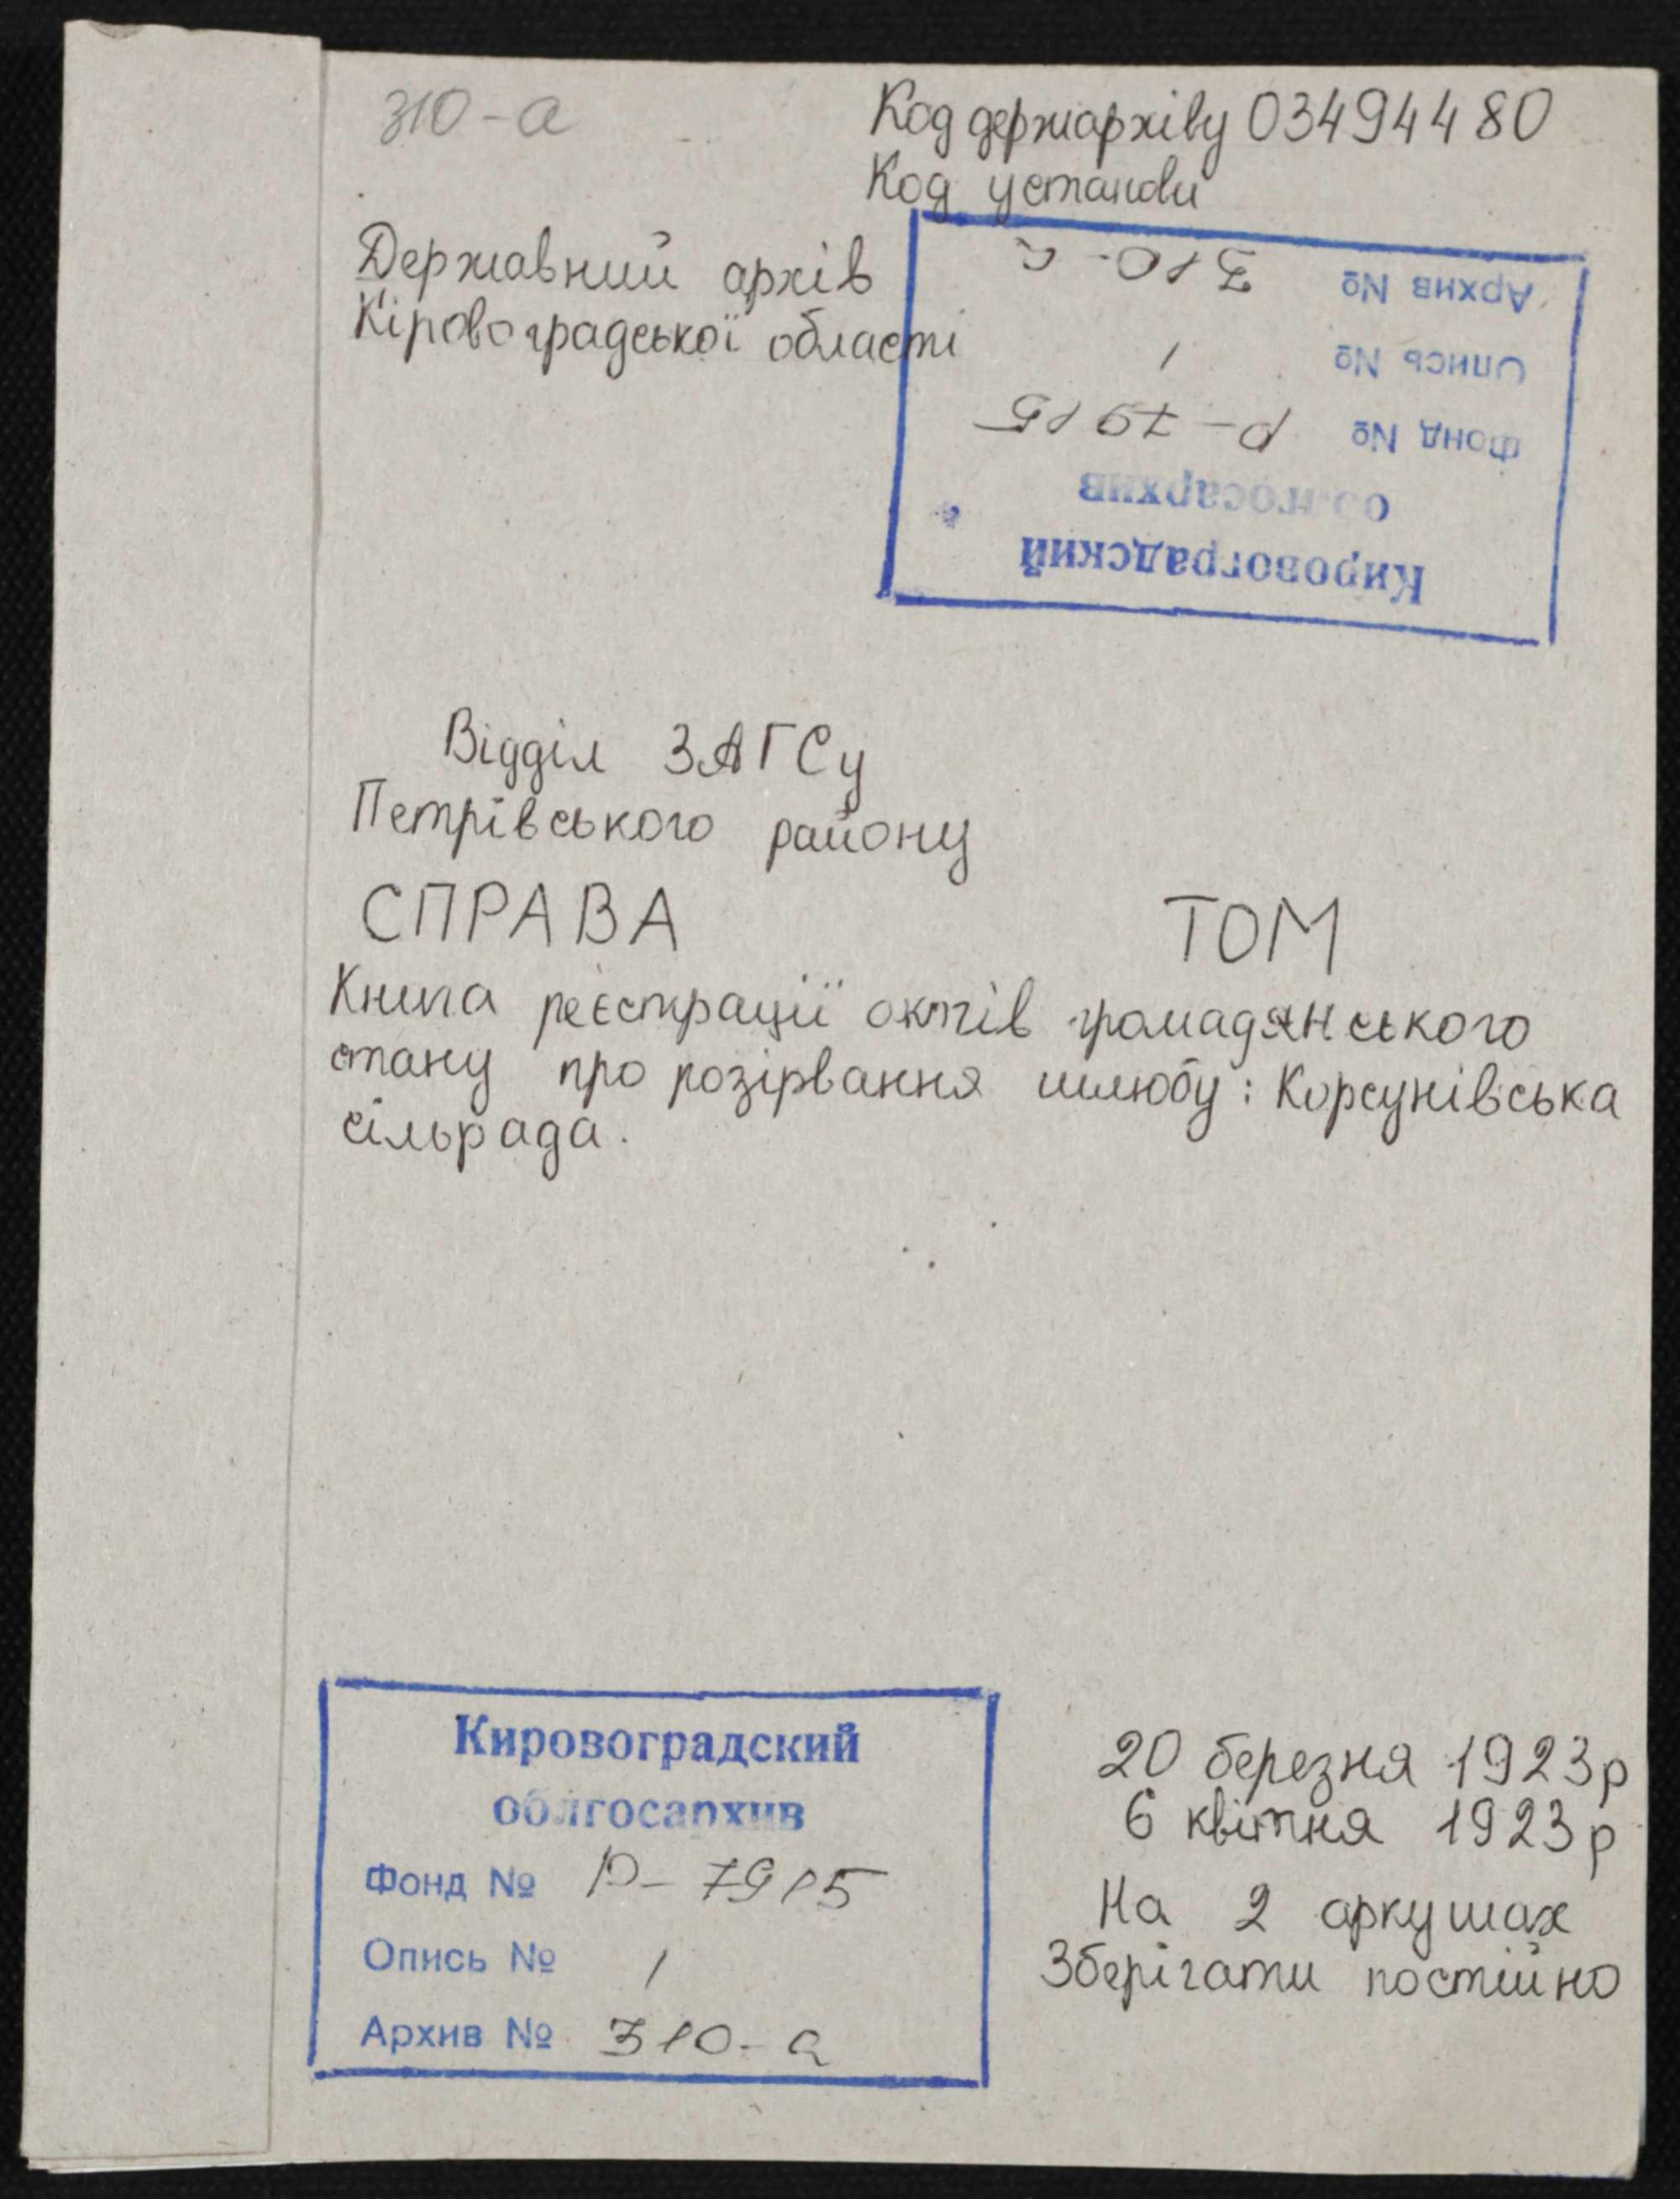 310-а
Код держархіву 03494480
Код установи
Державний архів
Кіровоградської області
Кировоградский
облгосархив
Фонд № Р-7915
Опись № 1
Архив № 310-а
Відділ ЗАГСу
Петрівського району
СПРАВА ТОМ
Книга реєстрації актів громадянського
стану про розірвання шлюбу: Корсунівська
сільрада.
Кировоградский
облгосархив
Фонд № Р-7915
Опись № 1
Архив № 310-а
20 березня 1923р
6 квітня 1923р
На 2 аркушах
Зберігати постійно